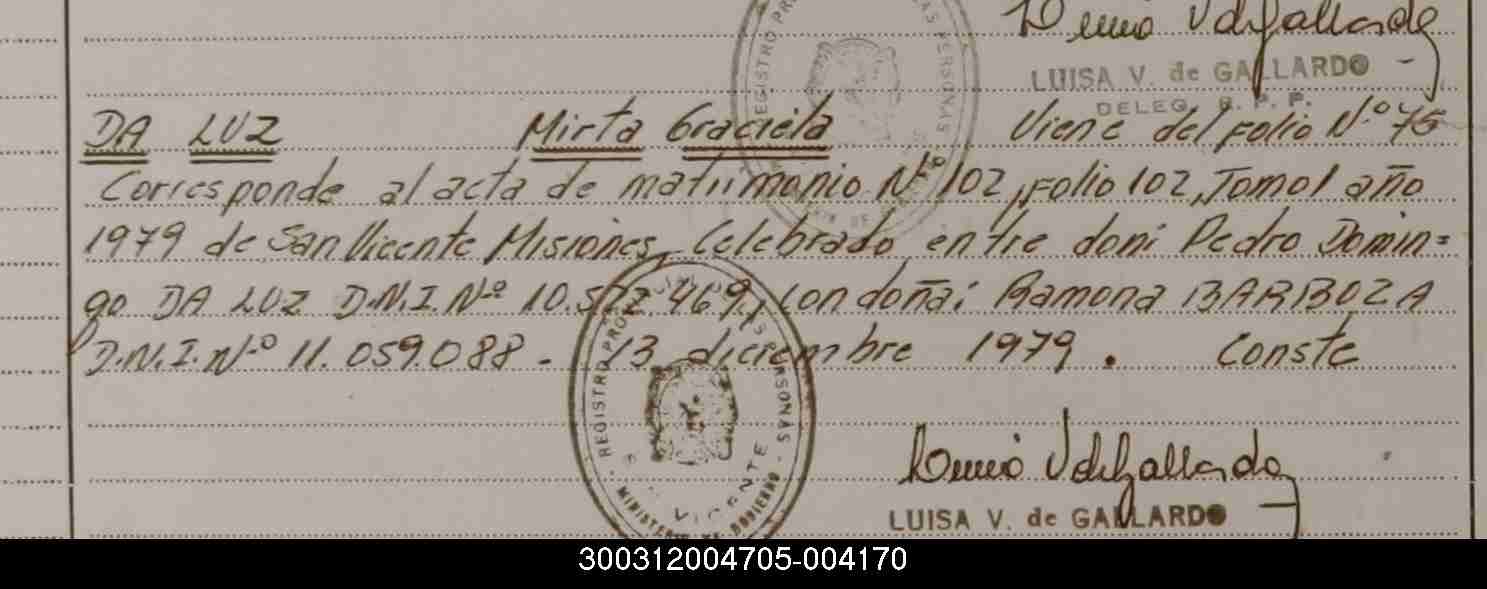 Luisa V de Gallardo
LUISA V. de GALLARDO
DELEG. R. P. P.
REGISTRO PR AS PERSONAS
DA LUZ Mirta Graciela Viene del Folio N.º 75
Corresponde al acta de matrimonio N.º 102, Folio 102, Tomo 1 año
1979 de San Vicente Misiones, Celebrado entre don: Pedro Domin=
go DA LUZ D.N.I. N.º 10.572.469, con doña: Ramona BARBOZA
D.N.I. N.º 11.059.088 - 13 diciembre 1979. Conste
REGISTRO PRO RSONAS
VICENTE
MINISTERIO DE GOBIERNO
Luisa V de Gallardo
LUISA V. de GALLARDO
300312004705-004170